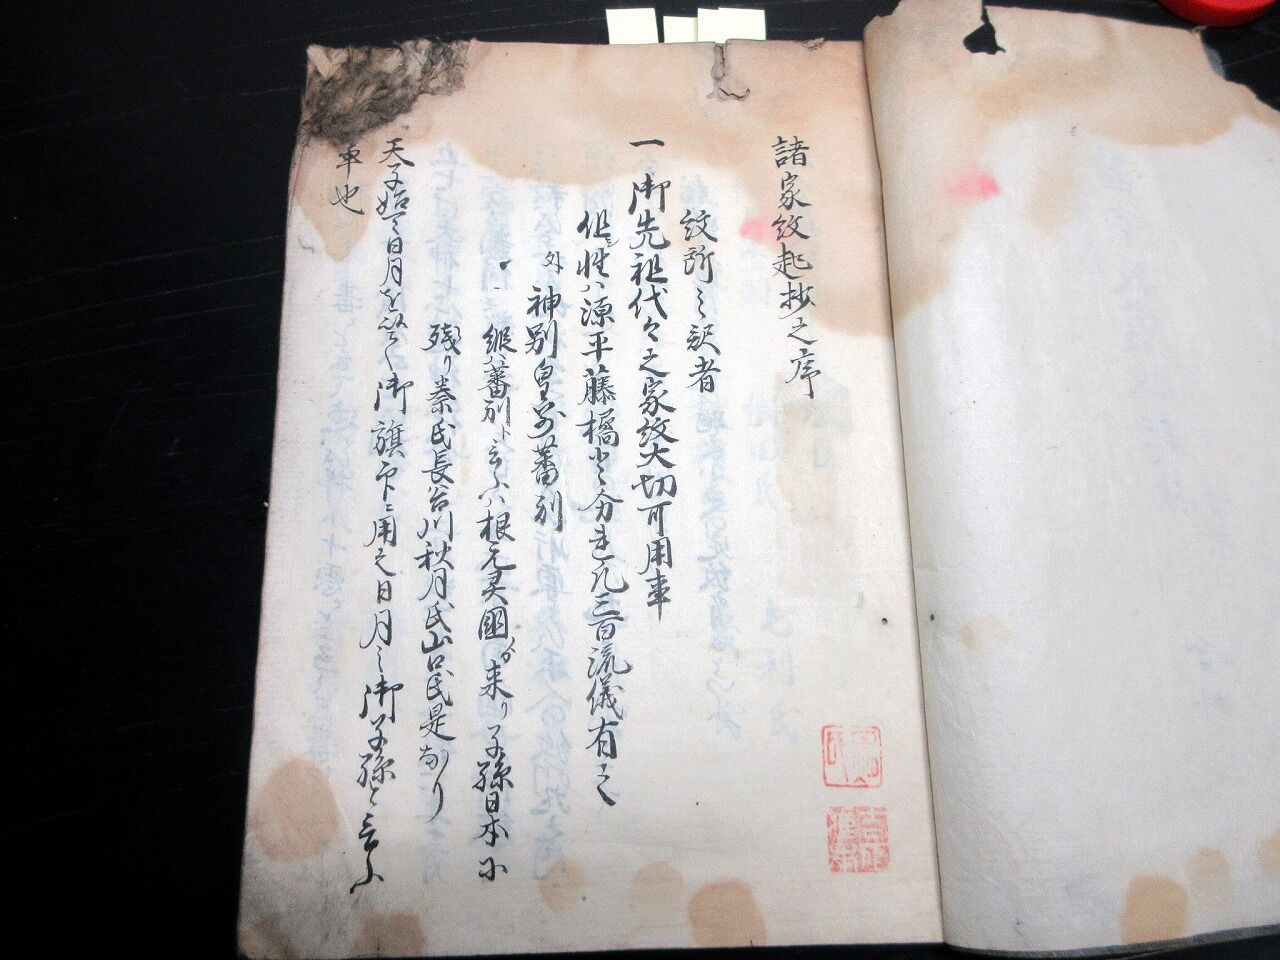 諸家紋起抄之序
紋所之訳者
一御先祖代々之家紋大切可用事
但シ姓ハ源平藤橘と分連凡三百流儀有之
外神別皇別蕃別
縦ハ蕃別ト云ハ根元異國ゟ来り子孫日本に
残り秦氏長谷川秋月氏山口氏是なり
天子始て日月を以て御旗印ニ用之日月之御子孫と云ふ
事也